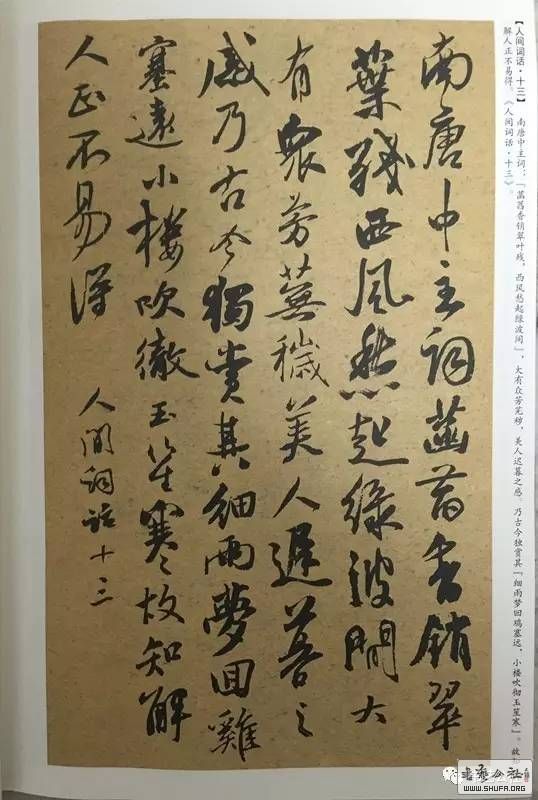 【人间词话·十三】 南唐中主词：「菡萏香销翠叶残，西风愁起绿波间」，大有众芳芜秽，美人迟暮之感。乃古今独赏其「细雨梦回鸡塞远，小楼吹彻玉笙寒」。故
解人正不易得。《人间词话·十三》。
南唐中主詞菡萏香銷翠
葉殘西風愁起綠波間大
有衆芳蕪穢美人遲暮之
感乃古今獨賞其細雨夢回雞
塞遠小樓吹徹玉笙寒故知解
人正不易得 人間詞話十三
书艺公社
WWW.SHUFA.ORG